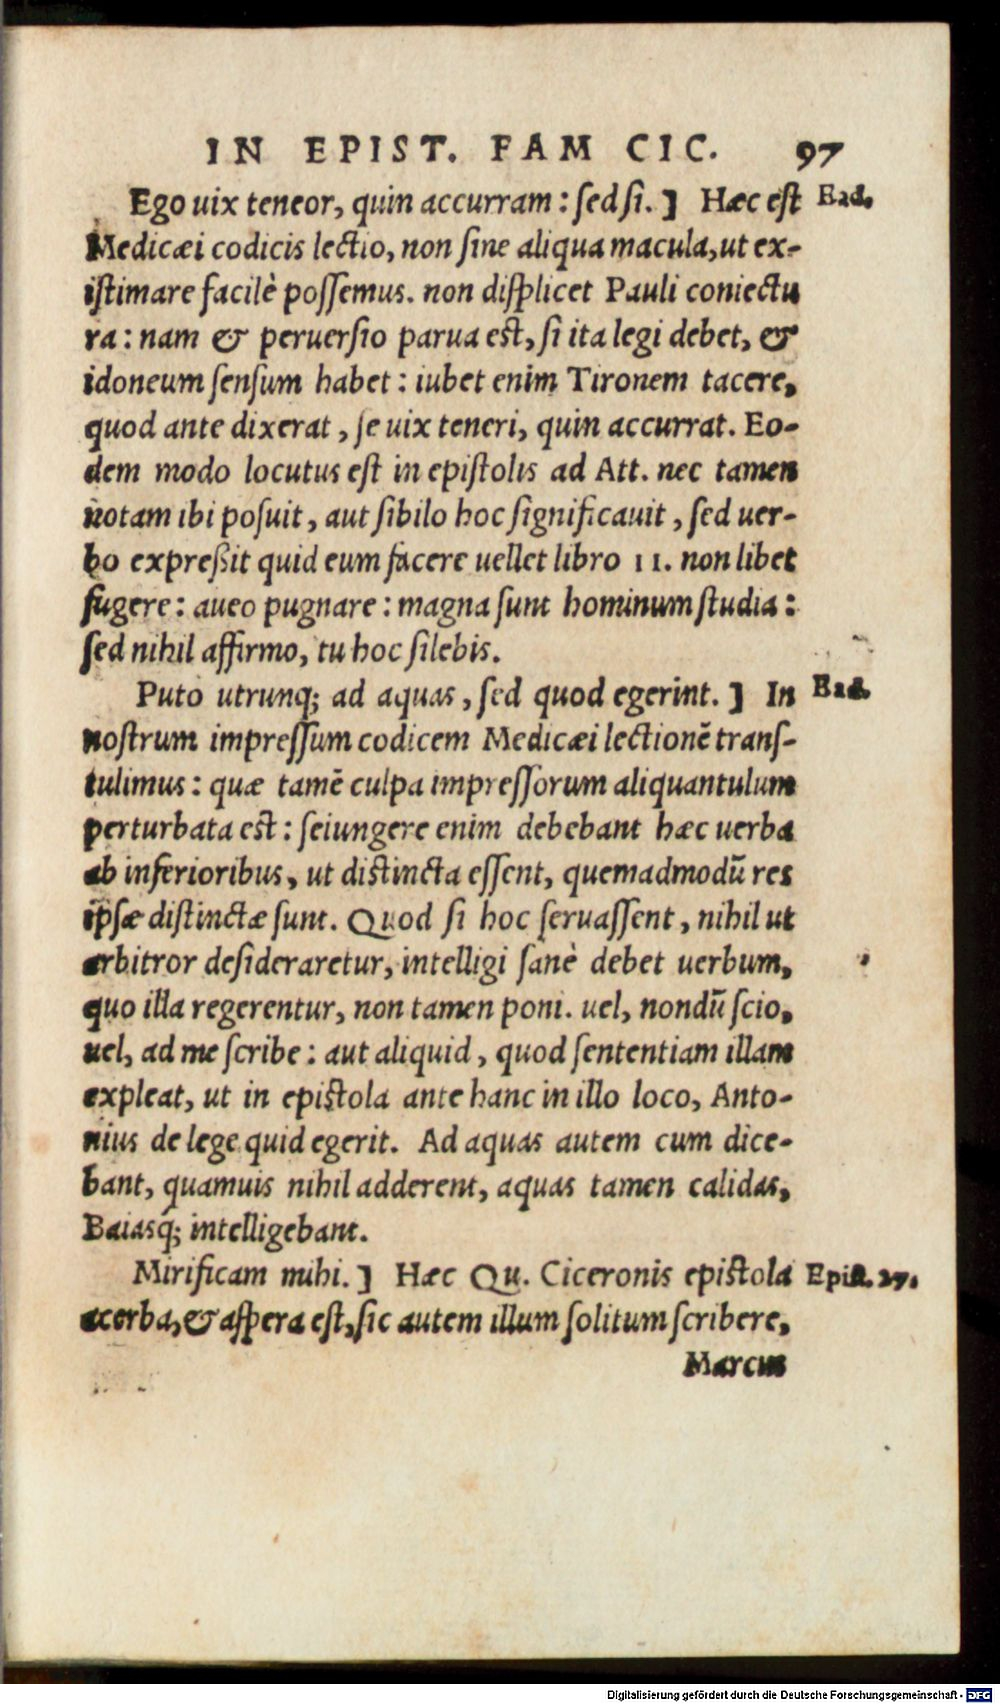 IN EPIST. FAM CIC. 97
Ego uix teneor, quin accurram: sed si. ] Hæc est Ead.
Medicæi codicis lectio, non sine aliqua macula, ut ex-
istimare facilè possemus. non displicet Pauli coniectu
ra: nam & peruersio parua est, si ita legi debet, &
idoneum sensum habet: iubet enim Tironem tacere,
quod ante dixerat, se uix teneri, quin accurrat. Eo-
dem modo locutus est in epistolis ad Att. nec tamen
notam ibi posuit, aut sibilo hoc significauit, sed uer-
bo expreßit quid eum facere uellet libro 11. non libet
fugere: aueo pugnare: magna sunt hominum studia:
sed nihil affirmo, tu hoc silebis.
Puto utrunq; ad aquas, sed quod egerint. ] In Ead.
nostrum impressum codicem Medicæi lectionē trans-
tulimus: quæ tamē culpa impressorum aliquantulum
perturbata est: seiungere enim debebant hæc uerba
ab inferioribus, ut distincta essent, quemadmodū res
ipsæ distinctæ sunt. Quod si hoc seruassent, nihil ut
arbitror desideraretur, intelligi sanè debet uerbum,
quo illa regerentur, non tamen poni. uel, nondū scio,
uel, ad me scribe: aut aliquid, quod sententiam illam
expleat, ut in epistola ante hanc in illo loco, Anto-
nius de lege quid egerit. Ad aquas autem cum dice-
bant, quamuis nihil adderent, aquas tamen calidas,
Baiasq́; intelligebant.
Mirificam mihi. ] Hæc Qu. Ciceronis epistola Epist. 27.
acerba, & aspera est, sic autem illum solitum scribere,
Marcus
Digitalisierung gefördert durch die Deutsche Forschungsgemeinschaft - DFG